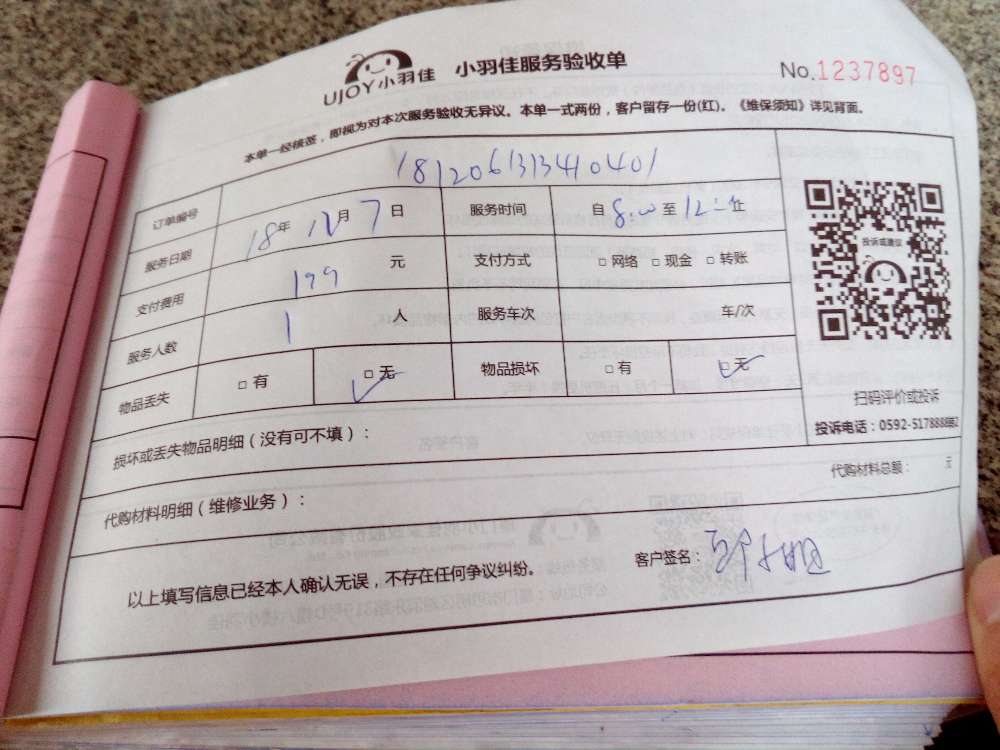 UJOY小羽佳 小羽佳服务验收单 No.1237897
本单一经核签，即视为对本次服务验收无异议。本单一式两份，客户留存一份(红)。《维保须知》详见背面。
订单编号 181206131340401
服务日期 18年 12月 7日 服务时间 自 8:00 至 12:00 止
支付费用 199 元 支付方式 □ 网络 □ 现金 □ 转账
服务人数 1 人 服务车次 车/次
物品丢失 □ 有 □ 无 物品损坏 □ 有 □ 无
投诉或建议
扫码评价或投诉
投诉电话：0592-5178888
损坏或丢失物品明细（没有可不填）：
代购材料明细（维修业务）： 代购材料总额： 元
以上填写信息已经本人确认无误，不存在任何争议纠纷。 客户签名：